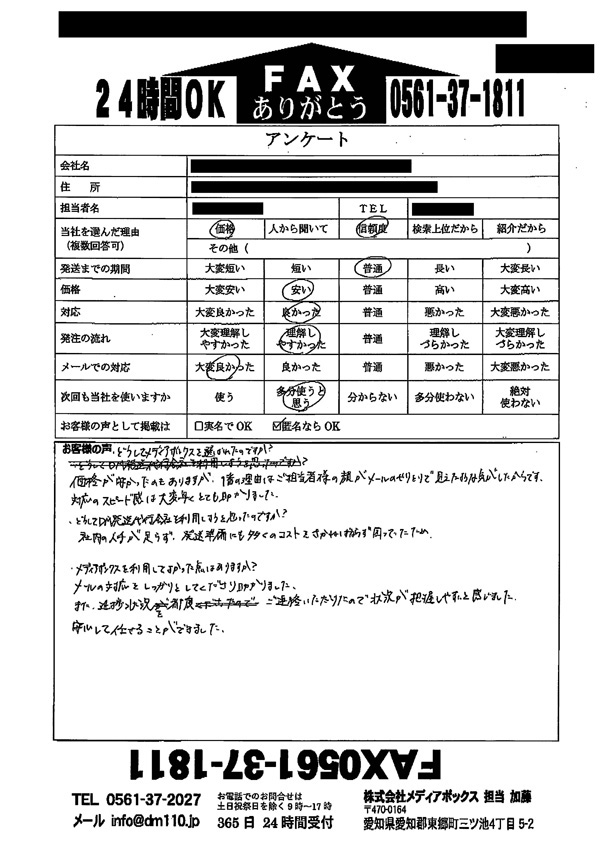 FAX
24時間OK ありがとう 0561-37-1811
アンケート
会社名
住 所
担当者名 TEL
当社を選んだ理由 価格 人から聞いて 信頼度 検索上位だから 紹介だから
(複数回答可) その他 ( )
発送までの期間 大変短い 短い 普通 長い 大変長い
価格 大変安い 安い 普通 高い 大変高い
対応 大変良かった 良かった 普通 悪かった 大変悪かった
発注の流れ 大変理解しやすかった 理解しやすかった 普通 理解しづらかった 大変理解しづらかった
メールでの対応 大変良かった 良かった 普通 悪かった 大変悪かった
次回も当社を使いますか 使う 多分使うと思う 分からない 多分使わない 絶対使わない
お客様の声として掲載は □実名でOK ☑匿名ならOK
お客様の声 ・どうしてメディアボックスを選ばれたのですか?
・どうしてDM発送代行会社を利用しようと思ったのですか?
価格が安かったのもありますが、1番の理由はご担当者様の顔がメールのやりとりで見えた様な気がしたからです。
対応のスピード感は大変早くとても助かりました。
・どうしてDM発送代行会社を利用しようと思ったのですか?
社内の人手が足らず、発送準備にも多くのコストと
困っていたため
・メディアボックスを利用してよかった点はありますか?
メールの対応としっかりとしてくださり助かりました。
また、進捗状況を都度 ご連絡いただたりたので状況が把握しやすと感じました。
安心して任せることができました。
FAX0561-37-1811
TEL 0561-37-2027 お電話でのお問合せは 株式会社メディアボックス 担当 加藤
土日祝祭日を除く9時~17時 〒470-0164
メール info@dm110.jp 365日24時間受付 愛知県愛知郡東郷町三ツ池4丁目5-2